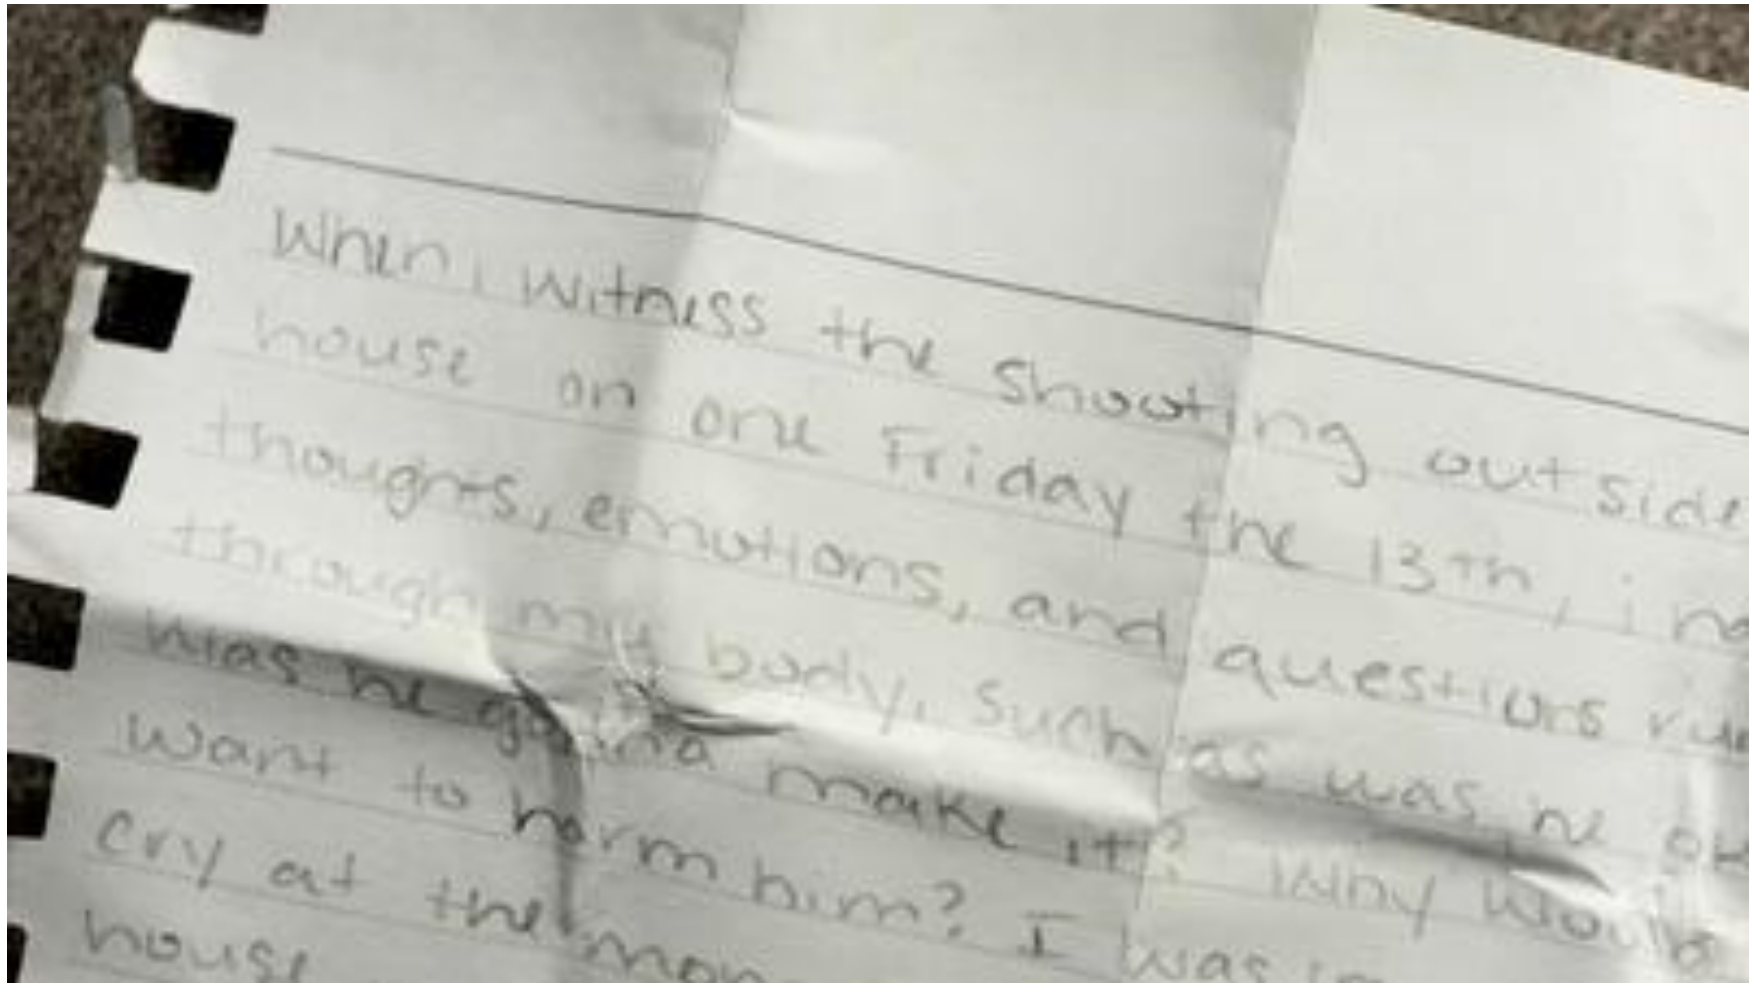 When i witness the shooting outside
house on one Friday the 13th, i
thoughts, emotions, and questions
through my body, such as was he
was he gonna make it? Why would
want to harm him? I was
cry at the
house